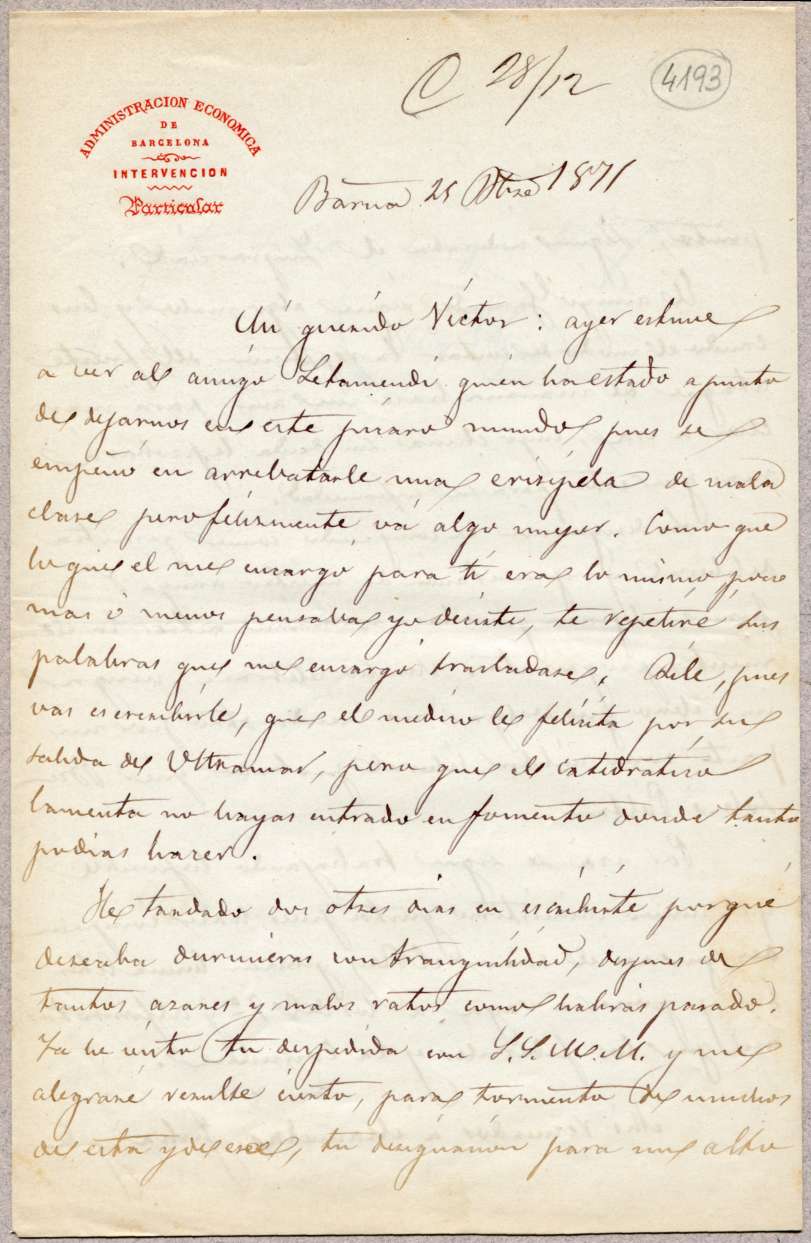 C 28/12
4193
ADMINISTRACION ECONOMICA
DE
BARCELONA
INTERVENCION
Particular
Barna 25 Dbre 1871
Mi querido Victor: ayer estuve
a ver al amigo Letamendi quien ha estado a punto
de dejarnos en este pícaro mundo pues se
empeñó en arrebatarle una erisipela de mala
clase pero felizmente vá algo mejor. Como que
lo que el me encargó para tí era lo mismo poco
mas ó menos pensaba yo decirte, te repetiré sus
palabras que me encargó trasladase. Dile, pues
vas escribirle, que el médico le felicita por su
salida de Ultramar, pero que el catedratico
lamenta no hayas entrado en fomento donde tanto
podias hacer.
He tardado dos ó tres dias en escribirte porqué
deseaba durmieras con tranquilidad, despues de
tantos azares y malos ratos como habrás pasado.
Ya he visto tu despedida con S.S.M.M. y me
alegraré resulte cierto, para tormento de muchos
de esta y de ese, tu designacion para un alto